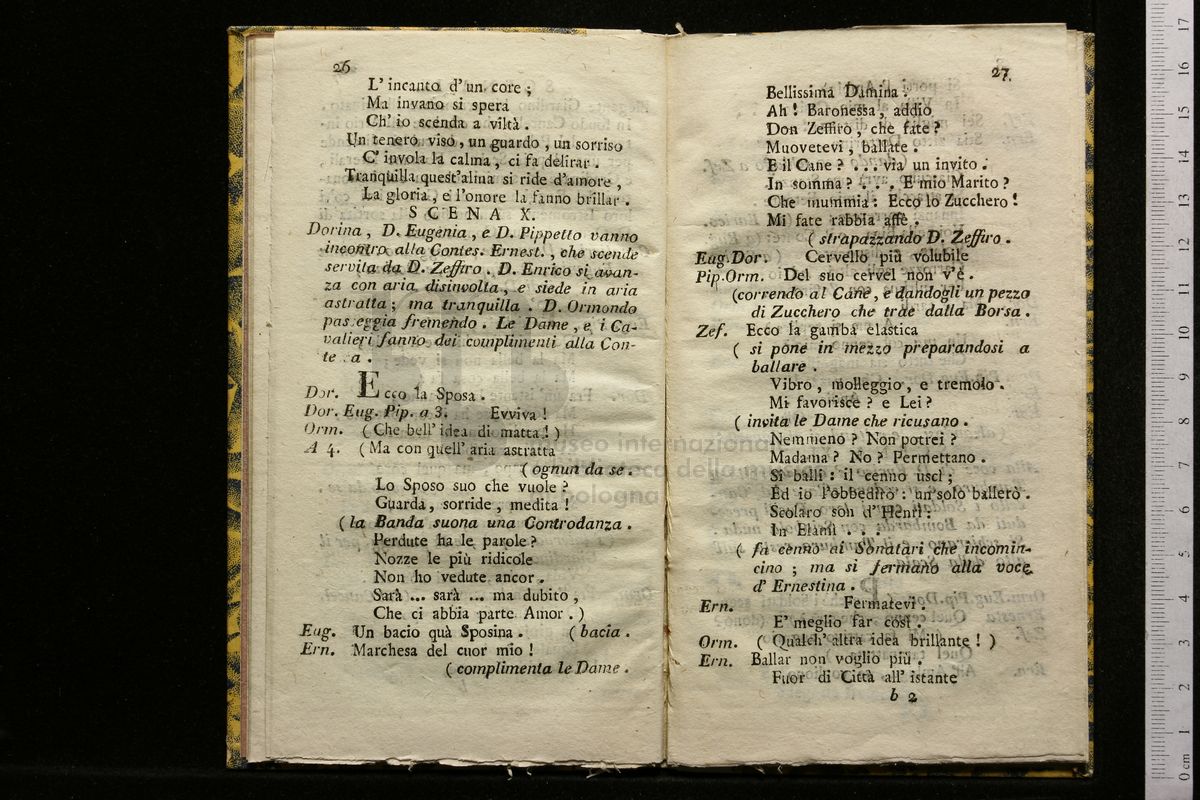 26
L' incanto d' un core ;
Ma invano si spera
Ch' io scenda a viltà .
Un tenero viso , un guardo , un sorriso
C' invola la calma , ci fa delirar .
Tranquilla quest'alma si ride d'amore ,
La gloria , e l'onore la fanno brillar .
SCENA X.
Dorina , D. Eugenia , e D. Pippetto vanno
incontro alla Contes. Ernest. , che scende
servita da D. Zeffiro . D. Enrico si avan-
za con aria disinvolta , e siede in aria
astratta ; ma tranquilla . D. Ormondo
passeggia fremendo . Le Dame , e i Ca-
valieri fanno dei complimenti alla Con-
tessa .
Dor. Ecco la Sposa .
Dor. Eug. Pip. a 3. Evviva !
Orm. ( Che bell' idea di matta ! )
A 4. ( Ma con quell' aria astratta
( ognun da se .
Lo Sposo suo che vuole ?
Guarda , sorride , medita !
( la Banda suona una Controdanza .
Perdute ha le parole ?
Nozze le più ridicole
Non ho vedute ancor .
Sarà ... sarà ... ma dubito ,
Che ci abbia parte Amor . )
Eug. Un bacio quà Sposina . ( bacia .
Ern. Marchesa del cuor mio !
( complimenta le Dame .
27
Bellissima Damina .
Ah ! Baronessa , addio
Don Zeffiro , che fate ?
Muovetevi , ballate .
E il Cane ? . . . via un invito .
In somma ? . . . E mio Marito ?
Che mummia : Ecco lo Zucchero !
Mi fate rabbia affè .
( strapazzando D. Zeffiro .
Eug. Dor. Cervello più volubile
Pip. Orm. Del suo cervel non v'è .
(correndo al Cane , e dandogli un pezzo
di Zucchero che trae dalla Borsa .
Zef. Ecco la gamba elastica
( si pone in mezzo preparandosi a
ballare .
Vibro , molleggio , e tremolo .
Mi favorisce ? e Lei ?
( invita le Dame che ricusano .
Nemmeno ? Non potrei ?
Madama ? No ? Permettano .
Si balli : il cenno uscì ;
Ed io l'obbedirò : un solo ballerò .
Scolaro son d' Henrì :
In Elamì . . .
( fa cenno ai Sonatari che incomin-
cino ; ma si fermano alla voce
d' Ernestina .
Ern. Fermatevi .
E' meglio far così .
Orm. ( Qualch' altra idea brillante ! )
Ern. Ballar non voglio più .
Fuor di Città all' istante
b 2
museo internazionale
della
bologna